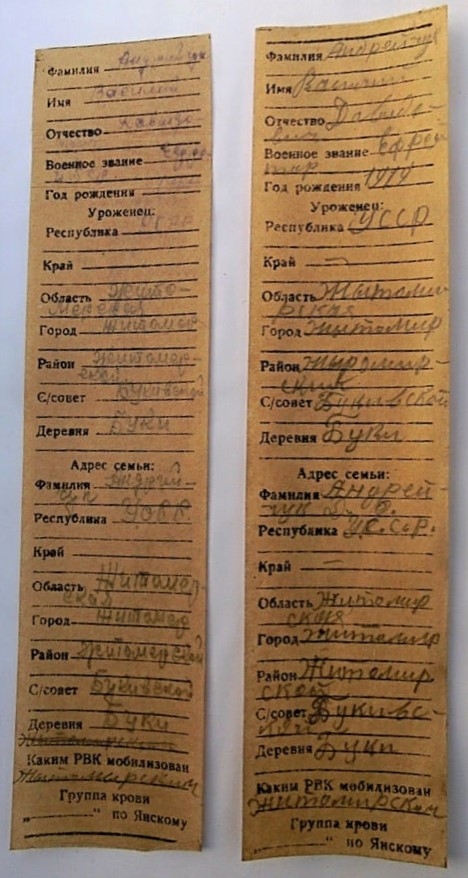 Фамилия
Имя Василий
Отчество
Военное звание
Год рождения
Уроженец:
Республика УССР
Край
Область Жито-
мирская
Город Житомир
Район Житомир-
ской
С/совет Букивской
Деревня Буки
Адрес семьи:
Фамилия Андрей-
чук
Республика УССР.
Край
Область Житомир-
ская
Город Житомир
Район Житомирской
С/совет Букивской
Деревня Буки
Каким РВК мобилизован
Житомирским
Группа крови
„ “ по Янскому
Фамилия Андрейчук
Имя Василий
Отчество Давидо-
вич
Военное звание Ефрей
тор
Год рождения
Уроженец:
Республика УССР
Край —
Область Житоми-
рская
Город Житомир
Район
С/совет Букивской
Деревня Буки
Адрес семьи:
Фамилия Андрей-
чук
Республика УС.С.Р.
Край —
Область Житомир
ская
Город Житомир
Район Житомир
ской
С/совет Букивс-
кой
Деревня Буки
Каким РВК мобилизован
Житомирским
Группа крови
„ “ по Янскому